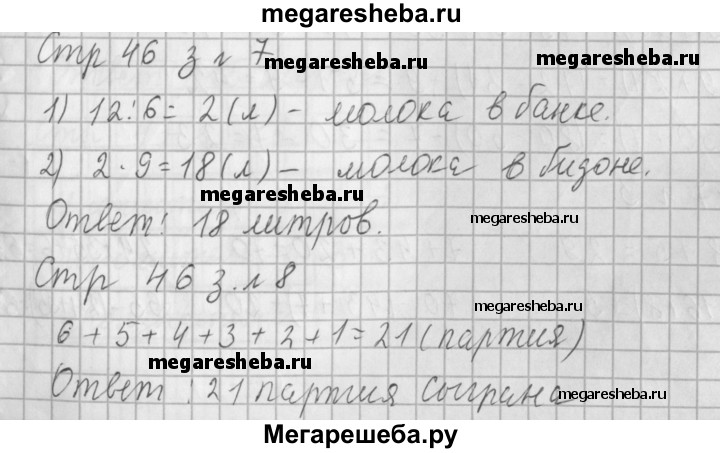 megaresheba.ru
Стр 46 з г 7 megaresheba.ru megaresheba.ru
1) 12:6= 2(л) – молока в банке.
2) 2·9=18(л) – молока в бидоне.
megaresheba.ru
Ответ: 18 литров. megaresheba.ru
Стр 46 з. г 8
megaresheba.ru
6+5+4+3+2+1=21(партия)
megaresheba.ru
Ответ: 21 партия сыграна megaresheba.ru
Мегарешеба.ру